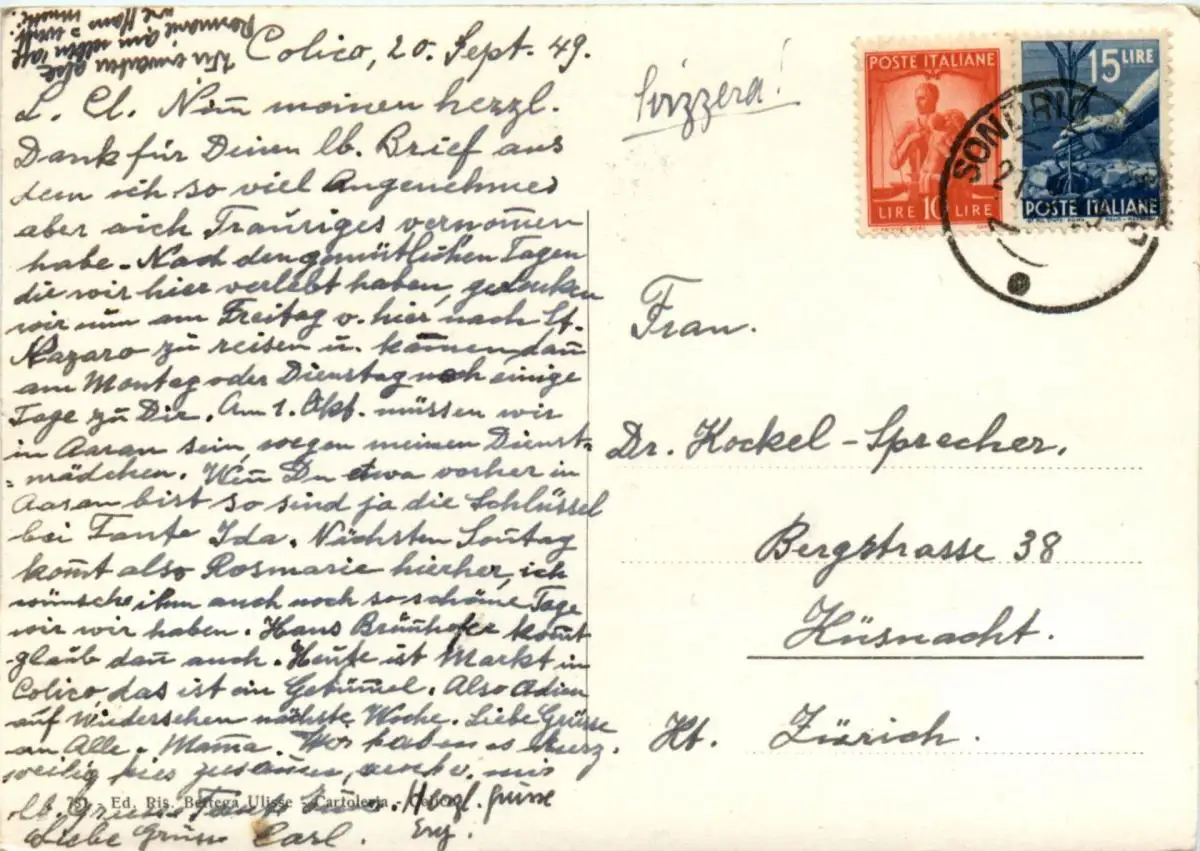 Colico, 20. Sept. 49.
L. Cl. Nim̄ meinen herzl.
Dank für Deinen lb. Brief aus
dem ich so viel Angenehmes
aber auch Trauriges vernom̄en
habe - Nach den gemütlichen Tagen
die wir hier verlebt haben, gedenken
wir nun am Freitag v. hier nach St.
Nazaro zu reisen u. kämen dan̄
am Montag oder Dienstag noch einige
Tage zu Dir. Am 1. Okt. müssen wir
in Aarau sein, wegen meinen Dienst-
=mädchen. Wen̄ Du etwa vorher in
Aarau bist so sind ja die Schlüssel
bei Tante Ida. Nächsten Son̄tag
kom̄t also Rosmarie hierher, ich
wünsche ihm auch noch so schöne Tage
wir wir haben. Hans Brun̄hofer kom̄t
glaub dan̄ auch. Heute ist Markt in
Colico, das ist ein Getüm̄el. Also Adieu
auf Wiedersehen nächste Woche. Liebe Grüsse
an Alle. Mama. Wir haben es kurz-
weilig hies zusam̄en, auch v. mir
lb. Grüsse Tante
Herzl. Grüsse
Liebe Grüsse Carl.
Wir erwarten also
Rosmarie am selben Tage
wie Hans
Svizzera!
POSTE ITALIANE
LIRE 10 LIRE
15 LIRE
POSTE ITALIANE
SONDRIO
21
Frau.
Dr. Kockel-Sprecher.
Bergstrasse 38
Küsnacht.
Kt. Zürich.
781 - Ed. Ris. Bettega Ulisse - Cartoleria - Colico